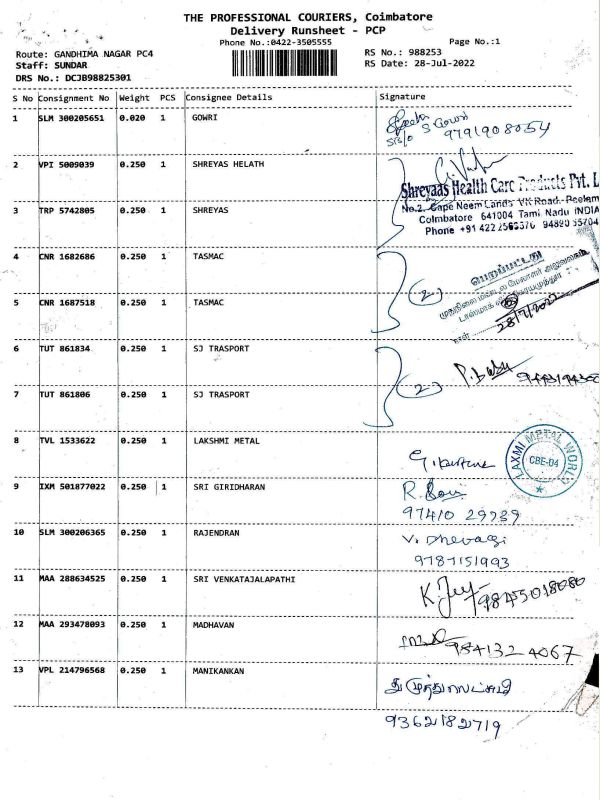 THE PROFESSIONAL COURIERS, Coimbatore
Delivery Runsheet - PCP
Phone No.:0422-3505555
Page No.:1
Route: GANDHIMA NAGAR PC4
RS No.: 988253
Staff: SUNDAR
RS Date: 28-Jul-2022
DRS No.: DCJB98825301
S No Consignment No Weight PCS Consignee Details Signature
1 SLM 300205651 0.020 1 GOWRI
S Gowri
S/o 9791908054
2 VPI 5009039 0.250 1 SHREYAS HELATH
Shreyaas Health Care Products Pvt. L
No.2, Cape Neem Lands VK Road, Peelam
3 TRP 5742805 0.250 1 SHREYAS
Coimbatore 641004 Tamil Nadu INDIA
Phone +91 422
4 CNR 1682686 0.250 1 TASMAC
பெறப்பட்டது
(2)
5 CNR 1687518 0.250 1 TASMAC
28/7/2022
நாள்
6 TUT 861834 0.250 1 SJ TRASPORT
(2)
7 TUT 861806 0.250 1 SJ TRASPORT
8 TVL 1533622 0.250 1 LAKSHMI METAL
LAXMI METAL WORLD
CBE-04
9 IXM 501877022 0.250 1 SRI GIRIDHARAN
97410 29739
10 SLM 300206365 0.250 1 RAJENDRAN
V. Dhevagi
9787151993
11 MAA 288634525 0.250 1 SRI VENKATAJALAPATHI
9845018080
12 MAA 293478093 0.250 1 MADHAVAN
9841324067
13 VPL 214796568 0.250 1 MANIKANKAN
9362182719